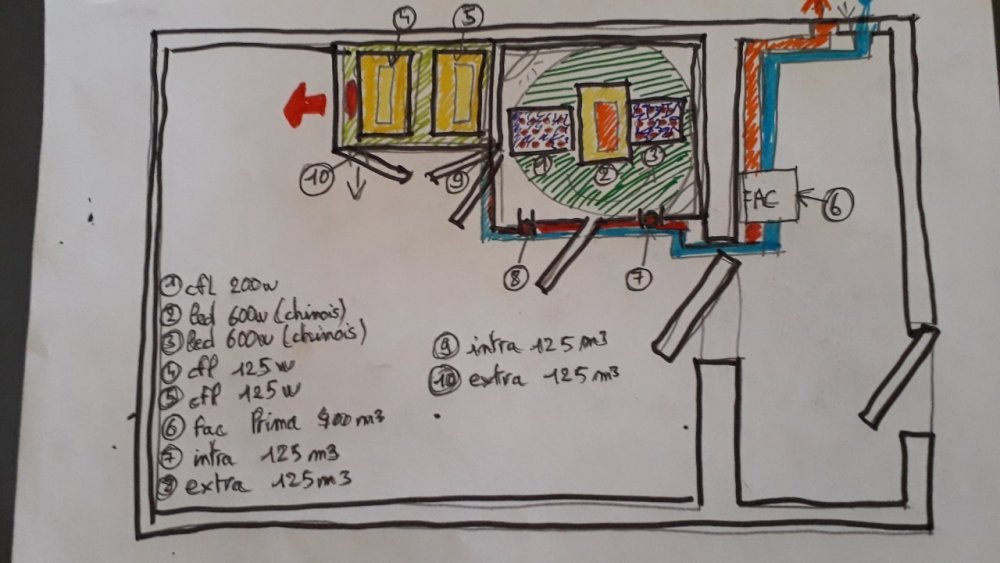 4
5
10
9
1
2
3
FAC
6
8
7
1 cfl 200w
2 led 600w (chinois)
3 led 600w (chinois)
4 cfl 125w
5 cfl 125w
6 fac Prima 400m3
7 intra 125m3
8 extra 125m3
9 intra 125m3
10 extra 125m3